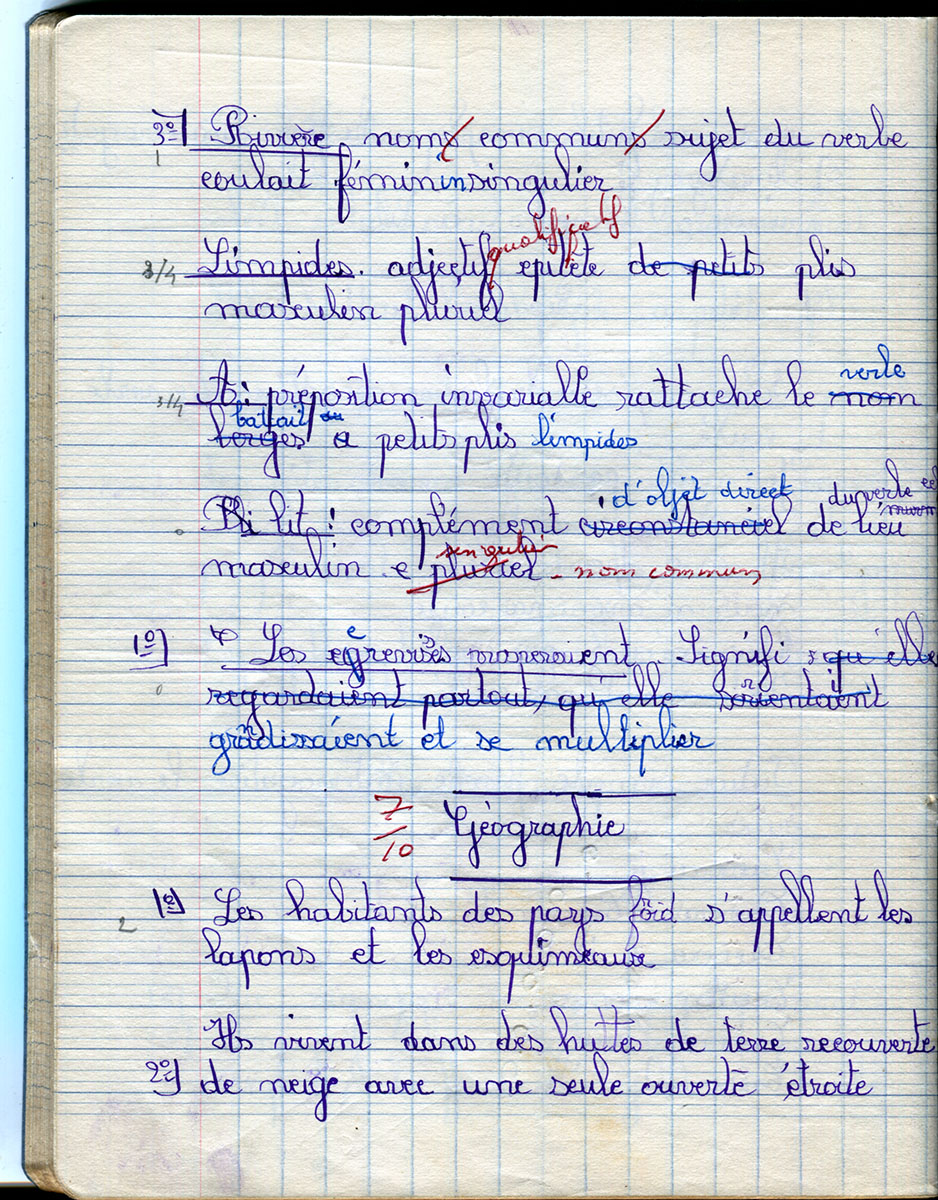 3º) Rivière, noms communs sujet du verbe
1
coulait fémininin singulier
qualificatif
3/4 Limpides. adjectif epitète de petits plis
masculin pluriel
verbe
3/4 A: préposition invarialle rattache le nom
battait
berges a petits plis limpides
d'objet direct du verbe
0 lit: complément circonstanciel de lieu
singulier
masculin e pluriel - nom commun
1º) Les egrevisses prosperaient. Signifi : qu'elle
0 regardaient partout, qu'elle sorientaient
grandissaient et se multiplier
7/10 Géographie
1º) Les habitants des pays froid s'appellent les
2
lapons et les esquimeaux
Ils vivent dans des huttes de terre recouverte
2º) de neige avec une seule ouverte étroite